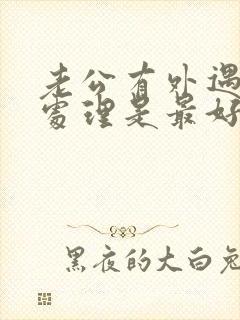 老公有外遇
处理是最好
黑夜的大白兔